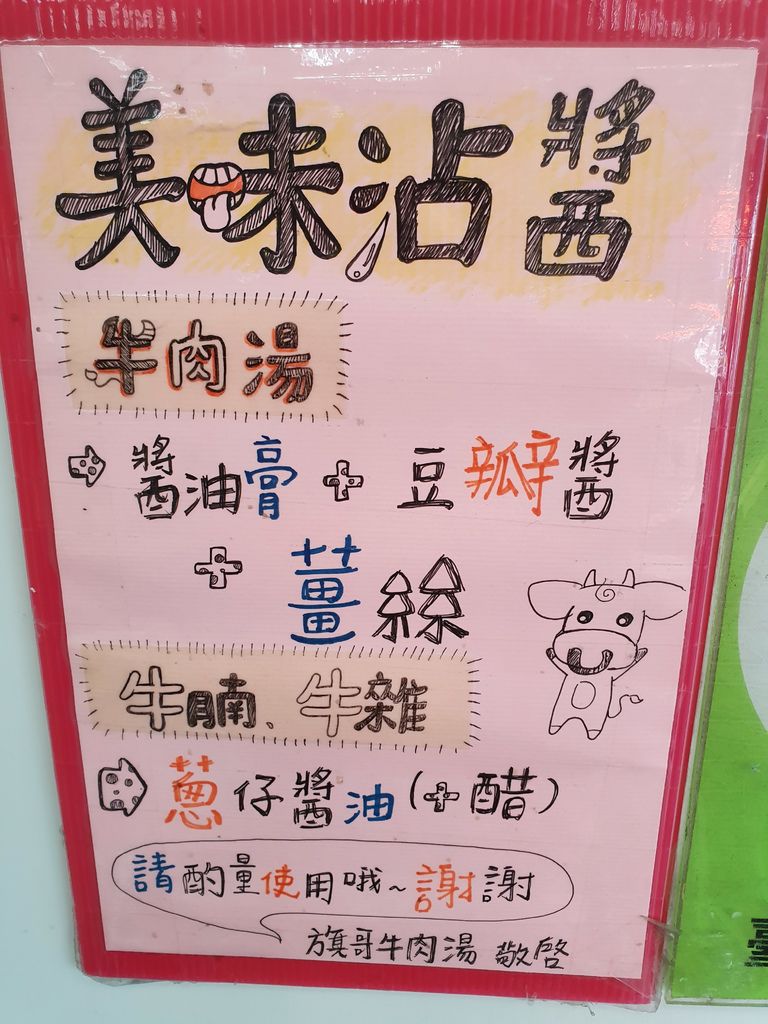 美味沾醬
牛肉湯
醬油膏+豆瓣醬
+薑絲
牛腩、牛雜
蔥仔醬油(+醋)
請酌量使用哦~謝謝
旗哥牛肉湯 敬啓